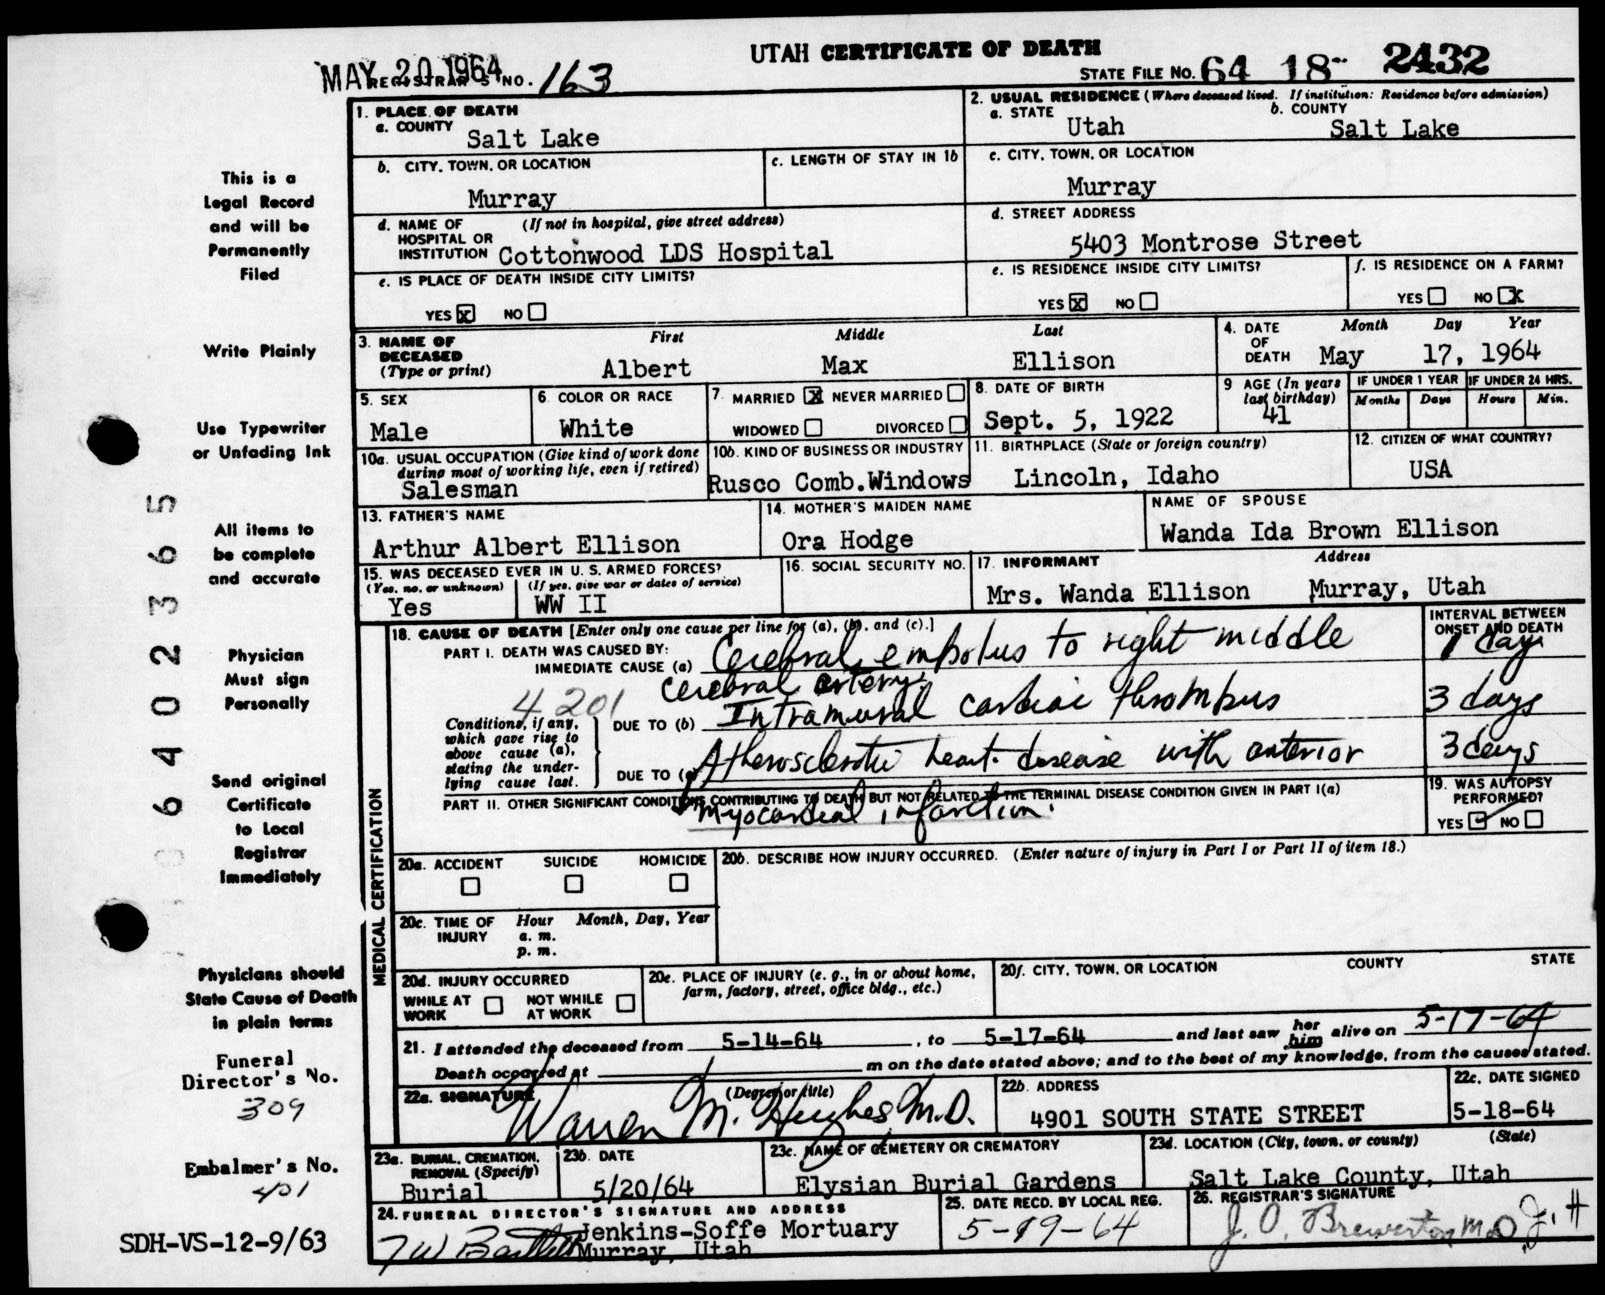 UTAH CERTIFICATE OF DEATH
MAY 20 1964
REGISTRAR'S NO. 163
STATE FILE NO. 64 18 2432
1. PLACE OF DEATH
a. COUNTY
Salt Lake
2. USUAL RESIDENCE (Where deceased lived. If institution: Residence before admission)
a. STATE
Utah
b. COUNTY
Salt Lake
b. CITY, TOWN, OR LOCATION
Murray
c. LENGTH OF STAY IN 1b
c. CITY, TOWN, OR LOCATION
Murray
d. NAME OF HOSPITAL OR INSTITUTION (If not in hospital, give street address)
Cottonwood LDS Hospital
d. STREET ADDRESS
5403 Montrose Street
e. IS PLACE OF DEATH INSIDE CITY LIMITS?
YES X NO
e. IS RESIDENCE INSIDE CITY LIMITS?
YES X NO
f. IS RESIDENCE ON A FARM?
YES NO X
3. NAME OF DECEASED (Type or print)
First Middle Last
Albert Max Ellison
4. DATE OF DEATH
Month Day Year
May 17, 1964
5. SEX
Male
6. COLOR OR RACE
White
7. MARRIED X NEVER MARRIED
WIDOWED DIVORCED
8. DATE OF BIRTH
Sept. 5, 1922
9 AGE (In years last birthday)
41
IF UNDER 1 YEAR
Months Days
IF UNDER 24 HRS.
Hours Min.
10a. USUAL OCCUPATION (Give kind of work done during most of working life, even if retired)
Salesman
10b. KIND OF BUSINESS OR INDUSTRY
Rusco Comb.Windows
11. BIRTHPLACE (State or foreign country)
Lincoln, Idaho
12. CITIZEN OF WHAT COUNTRY?
USA
13. FATHER'S NAME
Arthur Albert Ellison
14. MOTHER'S MAIDEN NAME
Ora Hodge
NAME OF SPOUSE
Wanda Ida Brown Ellison
15. WAS DECEASED EVER IN U. S. ARMED FORCES?
(Yes, no, or unknown) (If yes, give war or dates of service)
Yes WW II
16. SOCIAL SECURITY NO.
17. INFORMANT Address
Mrs. Wanda Ellison Murray, Utah
MEDICAL CERTIFICATION
18. CAUSE OF DEATH [Enter only one cause per line for (a), (b), and (c).]
INTERVAL BETWEEN ONSET AND DEATH
PART I. DEATH WAS CAUSED BY:
IMMEDIATE CAUSE (a) Cerebral embolus to right middle
cerebral artery.
1 day
4201
Conditions, if any, which gave rise to above cause (a), stating the underlying cause last.
DUE TO (b) Intramural cardiac thrombus
3 days
DUE TO (c) Atherosclerotic heart disease with anterior
3 days
PART II. OTHER SIGNIFICANT CONDITIONS CONTRIBUTING TO DEATH BUT NOT RELATED TO THE TERMINAL DISEASE CONDITION GIVEN IN PART I(a)
myocardial infarction.
19. WAS AUTOPSY PERFORMED?
YES ✓ NO
20a. ACCIDENT SUICIDE HOMICIDE
20b. DESCRIBE HOW INJURY OCCURRED. (Enter nature of injury in Part I or Part II of item 18.)
20c. TIME OF INJURY Hour Month, Day, Year
a. m.
p. m.
20d. INJURY OCCURRED
WHILE AT WORK NOT WHILE AT WORK
20e. PLACE OF INJURY (e. g., in or about home, farm, factory, street, office bldg., etc.)
20f. CITY, TOWN, OR LOCATION COUNTY STATE
21. I attended the deceased from 5-14-64, to 5-17-64 and last saw her him alive on 5-17-64
Death occurred at m on the date stated above; and to the best of my knowledge, from the causes stated.
22a. SIGNATURE (Degree or title)
Warren M. Hughes, M.D.
22b. ADDRESS
4901 SOUTH STATE STREET
22c. DATE SIGNED
5-18-64
23a. BURIAL, CREMATION, REMOVAL (Specify)
Burial
23b. DATE
5/20/64
23c. NAME OF CEMETERY OR CREMATORY
Elysian Burial Gardens
23d. LOCATION (City, town, or county) (State)
Salt Lake County, Utah
24. FUNERAL DIRECTOR'S SIGNATURE AND ADDRESS
Jenkins-Soffe Mortuary
Murray, Utah
25. DATE RECD. BY LOCAL REG.
5-19-64
26. REGISTRAR'S SIGNATURE
J. O. Brewerton M.D. J. H
This is a
Legal Record
and will be
Permanently
Filed
Write Plainly
Use Typewriter
or Unfading Ink
All items to
be complete
and accurate
Physician
Must sign
Personally
Send original
Certificate
to Local
Registrar
Immediately
Physicians should
State Cause of Death
in plain terms
Funeral
Director's No.
309
Embalmer's No.
401
SDH-VS-12-9/63
6402365